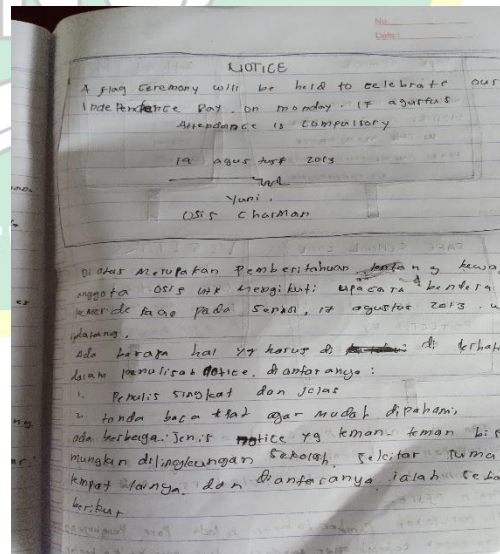 No
Date :
NOTICE
A flag ceremony will be held to celebrate our
Independence Day. on monday. 17 agustus
Attendance is compulsory
19 agustus 2013
Yuni.
OSIS Charman
Di atas Merupakan Pemberitahuan tentang kewa
anggota OSIS utk mengikuti upacara bendera
pada Senin, 17 agustus 2013.
Ada barapa hal yg harus di di perhat
dalam penulisan notice, diantaranya :
1. Penulis singkat dan jelas
2. tanda baca agar mudah dipahami,
ada berbagai jenis notice yg teman-teman bis
mungkin dilingkungan Sekolah, sekitar ruma
tempat lainya, dan diantaranya ialah seba
berikut